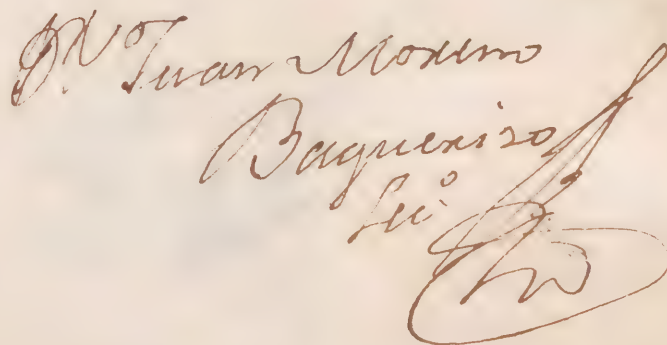 Dn. Juan Moreno
Baquerizo